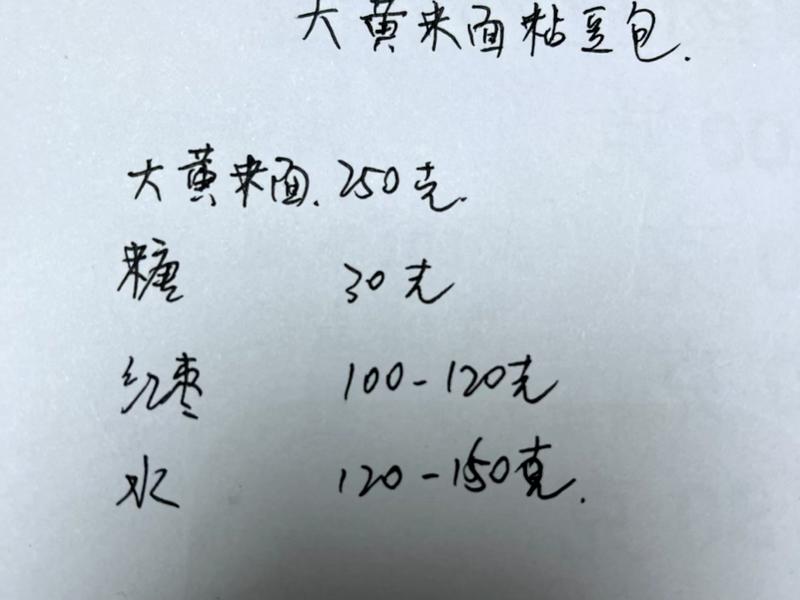 大黄米面粘豆包.
大黄米面. 250克.
糖 30克
红枣 100-120克
水 120-150克.